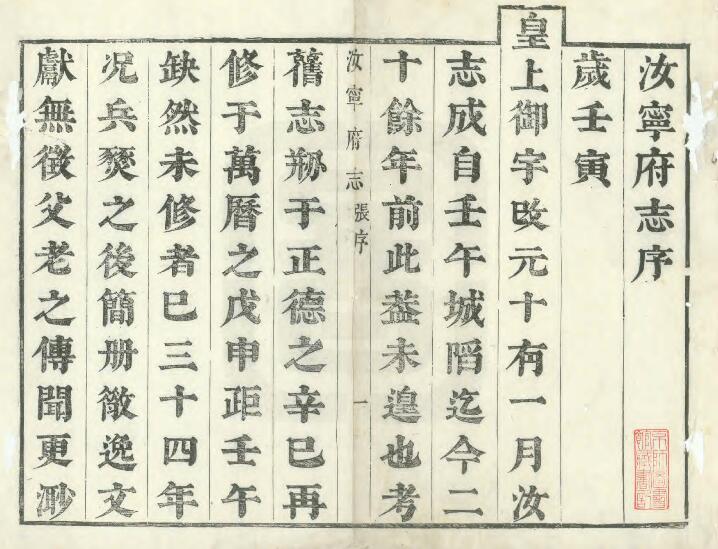 汝寧府志序
歲壬寅
皇上御宇改元十有一月汝
志成自壬午城陷迄今二
十餘年前此葢未遑也考
汝寧府志 張序 一
舊志刱于正德之辛巳再
修于萬曆之戊申距壬午
缺然未修者已三十四年
况兵燹之後簡册散逸文
獻無徵父老之傳聞更渺